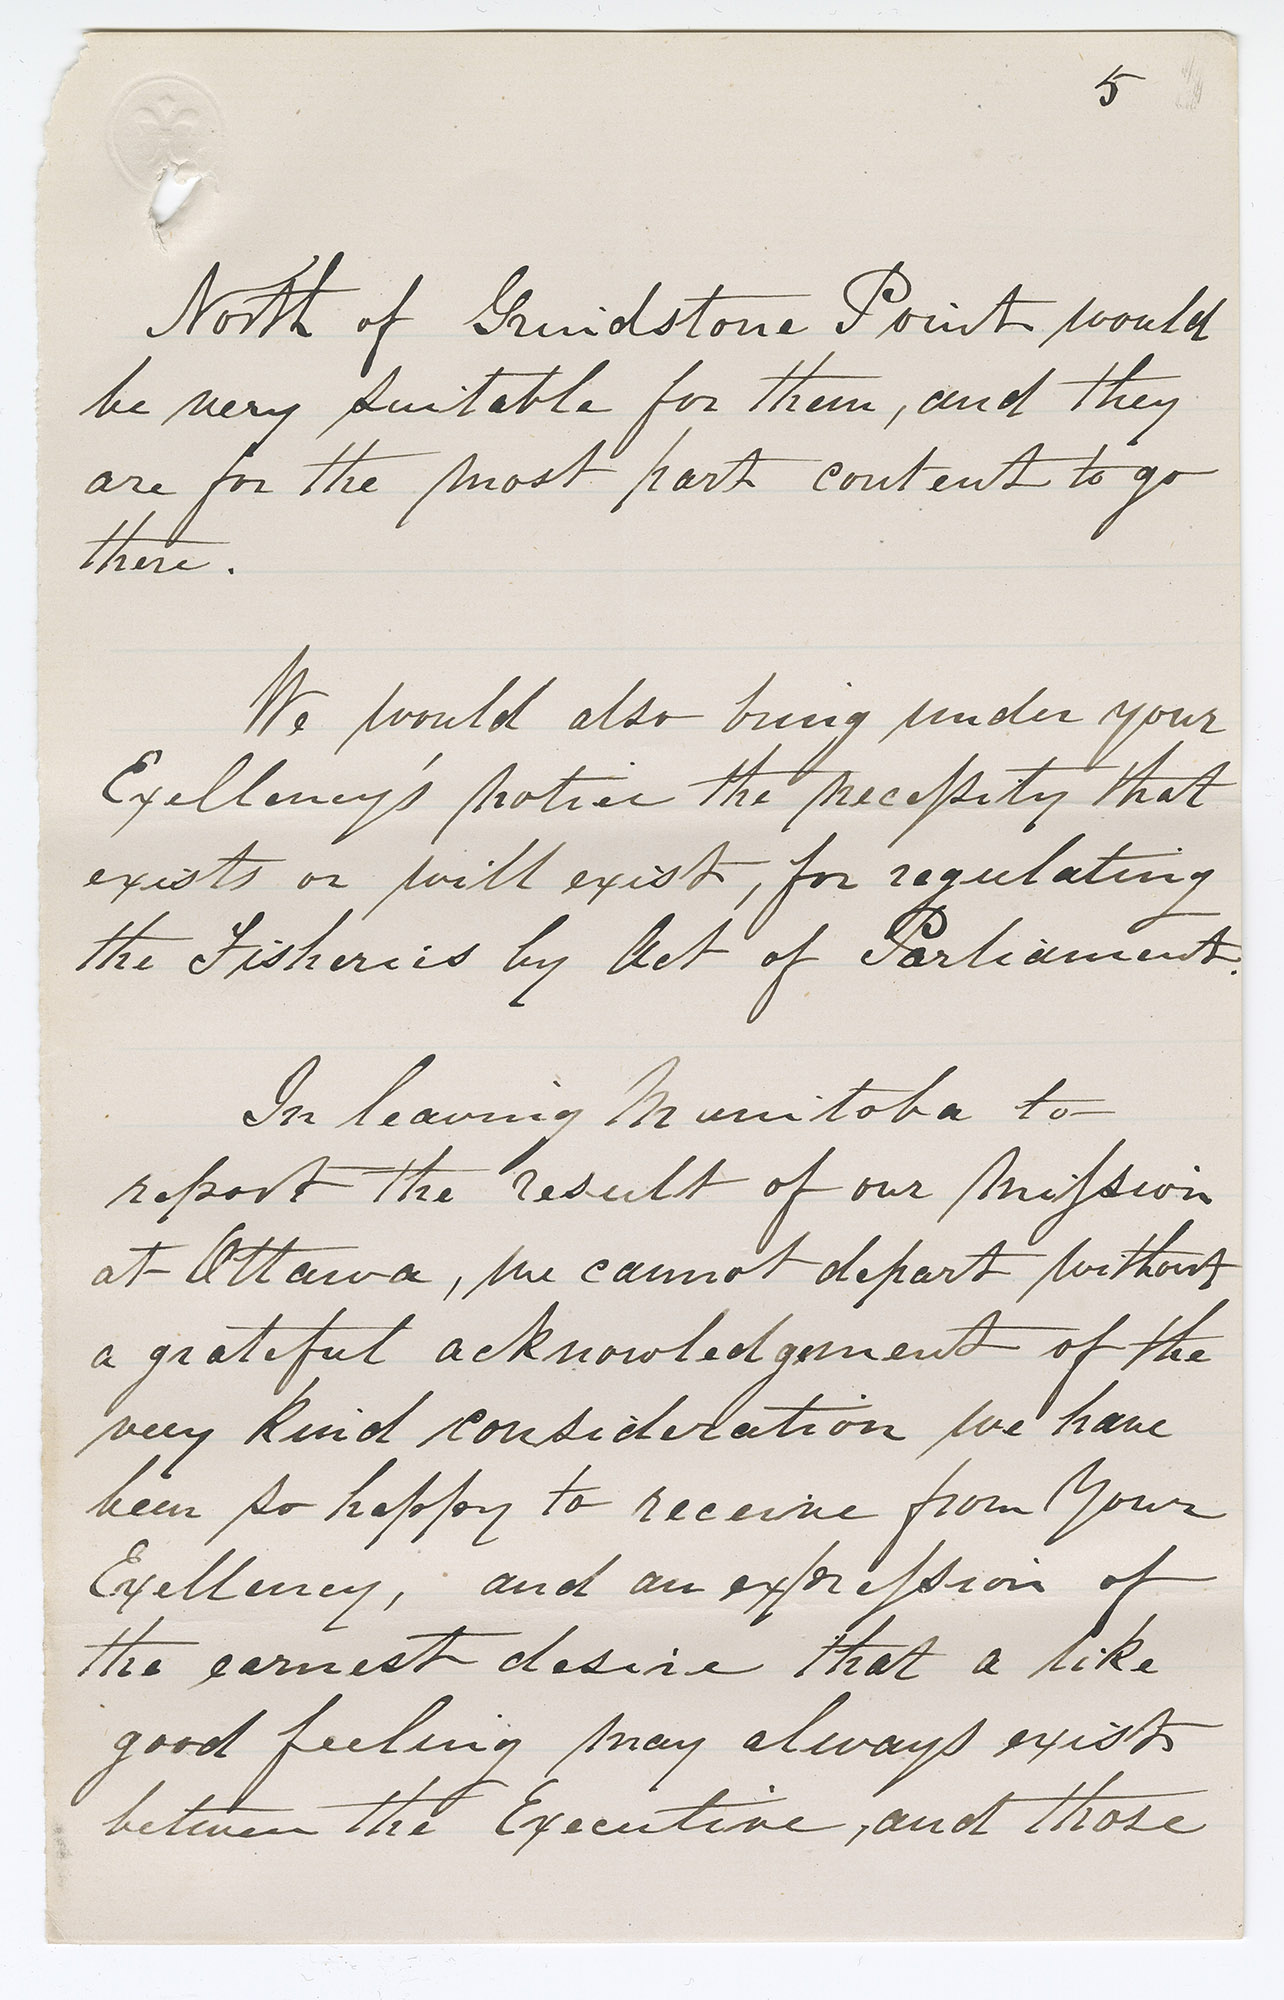 5
North of Grindstone Point would
be very suitable for them, and they
are for the most part content to go
there.
We would also bring under your
Exellency's notice the necessity that
exists or will exist, for regulating
the Fisheries by Act of Parliament.
In leaving Manitoba to
report the result of our Mission
at Ottawa, we cannot depart without
a grateful acknowledgement of the
very kind consideration we have
been so happy to receive from Your
Exellency, and an expression of
the earnest desire that a like
good feeling may always exist
between the Executive, and those